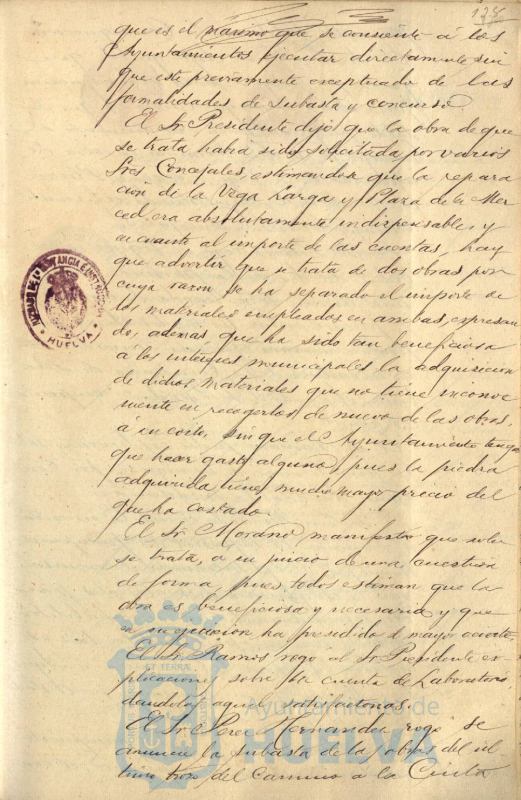 128
que es el maximo que se consiente a los
Ayuntamientos ejecutar directamente sin
que este previamente exceptuado de las
formalidades de subasta y concurso.
El Sr. Presidente dijo que la obra de que
se trata habia sido solicitada por varios
Sres Concejales, estimandose que la repara
ción de la Vega Larga y Plaza de la Mer
ced, era absolutamente indispensable, y
en cuanto al importe de las cuentas, hay
que advertir que se trata de dos obras por
cuya razon se ha separado el importe de
los materiales empleados en ambas, expresan
do, además que ha sido tan beneficiosa
a los intereses municipales la adquisición
de dichos materiales que no tiene inconve
niente en recogerlos de nuevo de las obras,
a su costo, sin que el Ayuntamiento tenga
que hacer gasto alguno, pues la piedra
adquirida tiene mucho mayor precio del
que ha costado.
El Sr. Morano manifestó que solo
se trata, a su juicio de una cuestion
de forma, pues todos estiman que la
obra es beneficiosa y necesaria y que
en su ha presidido el mayor acierto
El Sr. Ramos rogó al Sr. Presidente ex
plicaciones sobre la cuenta de Laboratorio
dandolas aquel satisfactorias.
El Sr. Perez Hernandez rogó se
anuncie la subasta de las obras del ul
timo trozo del Camino a la Cinta
JUZGADO DE 1ª INSTANCIA E INSTRUCCION
HUELVA
ET TERRAE
Ayuntamiento de
HUELVA